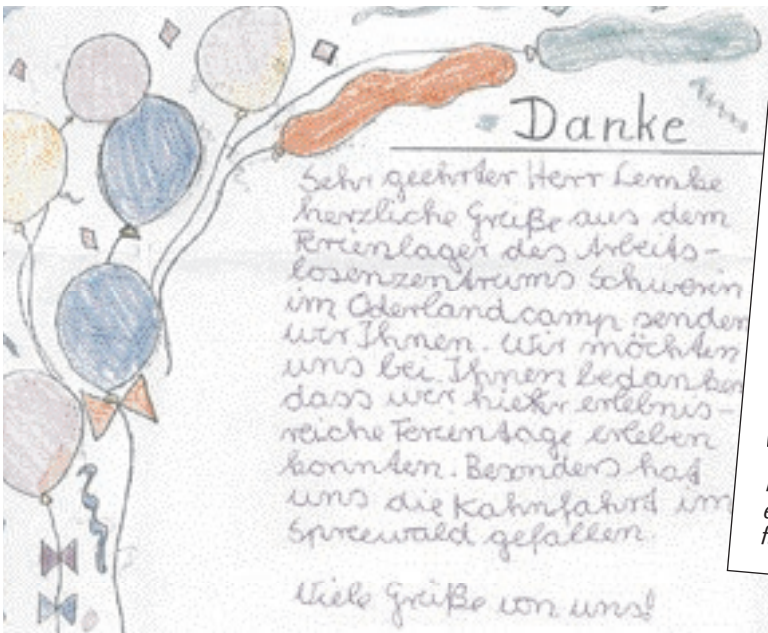 Danke
Sehr geehrter Herr Lembe
herzliche Grüße aus dem
Ferienlager des Arbeits-
losenzentrums Schwerin
im Oderlandcamp senden
wir Ihnen. Wir möchten
uns bei Ihnen bedanken
dass wir hier erlebnis-
reiche Ferientage erleben
konnten. Besonders hat
uns die Kahnfahrt im
Spreewald gefallen.
Viele Grüße von uns!